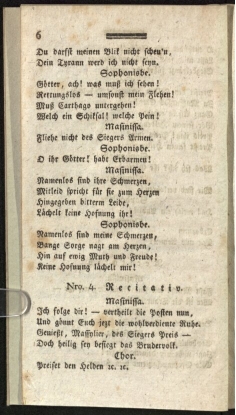 6
Du darfst meinen Blik nicht scheu'n,
Dein Tyrann werd ich nicht seyn.
Sophonisbe.
Götter, ach! was muß ich sehen!
Rettungslos — umsonst mein Flehen!
Muß Carthago untergehen!
Welch ein Schiksal! welche Pein!
Masinissa.
Fliehe nicht des Siegers Armen.
Sophonisbe.
O ihr Götter! habt Erbarmen!
Masinissa.
Namenlos sind ihre Schmerzen,
Mitleid spricht für sie zum Herzen
Hingegeben bitterm Leide,
Lächelt keine Hofnung ihr!
Sophonisbe.
Namenlos sind meine Schmerzen,
Bange Sorge nagt am Herzen,
Hin auf ewig Muth und Freude!
Keine Hofnung lächelt mir!
Nro. 4. Recitativ.
Masinissa.
Ich folge dir! — vertheilt die Posten nun,
Und gönnt Euch jezt die wohlverdiente Ruhe.
Gewest, Massylier, des Siegers Preis —
Doch heilig sey besiegt das Brudervolk.
Chor.
Preiset den Helden ꝛc. ꝛc.